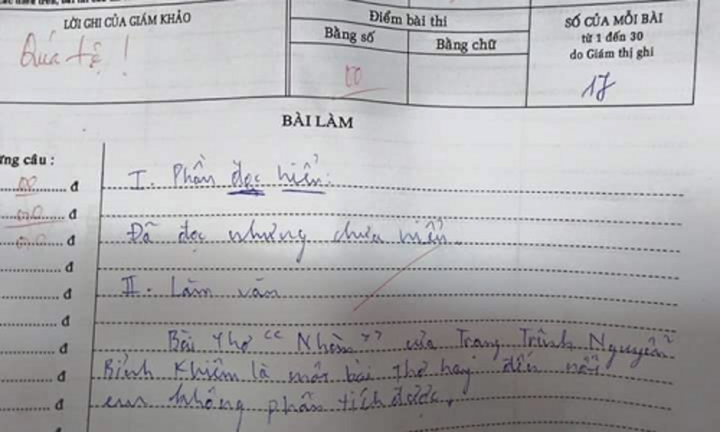 LỜI GHI CỦA GIÁM KHẢO
Quá tệ !
Điểm bài thi
Bằng số
Bằng chữ
00
SỐ CỦA MỖI BÀI
từ 1 đến 30
do Giám thị ghi
17
BÀI LÀM
ừng câu :
00 đ
0,0 đ
0,0 đ
đ
đ
đ
đ
đ
đ
I. Phần đọc hiển:
Đã đọc nhưng chưa hiển.
II. Làm văn
Bài thơ "Nhàn" của Trạng Trình Nguyễn
Bỉnh Khiêm là một bài thơ hay đến nỗi
em không phân tích được.